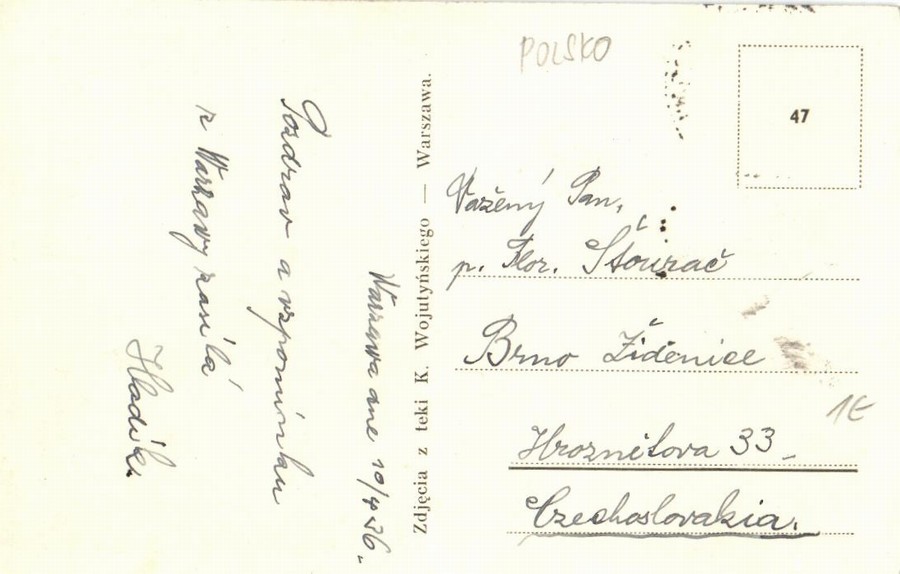 Warszawa dne 10/4 36.
Pozdrav a vzpomínku
z Warzawy zasílá
Hladík.
Zdjęcia z teki K. Wojutyńskiego — Warszawa.
POLSKO
47
Važený Pan,
p. Flor. Šťourač
Brno Židenice
Hroznětova 33
Czechoslovakia.
1E